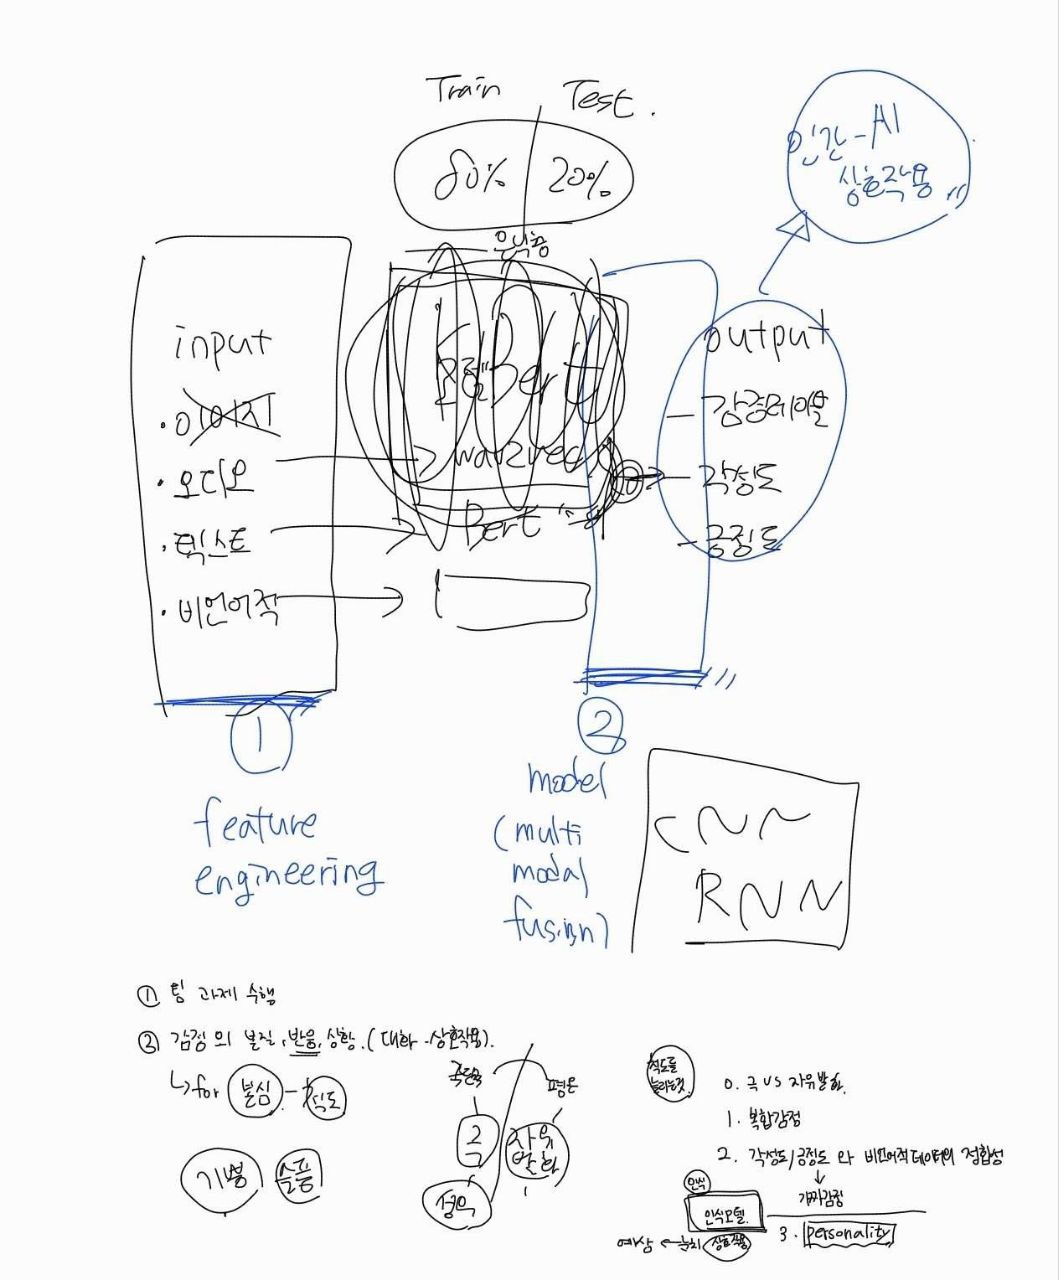 Train
Test.
80%
20%
인간-AI
상호작용
은닉층
input
· 이미지
· 오디오
· 텍스트
· 비언어적
Bert
wav2vec
Bert
output
- 감정레이블
- 각성도
- 긍정도
①
feature
engineering
②
model
(multi
modal
fusion)
CNN
RNN
① 팀 과제 수행
② 감정의 본질, 반응, 상황. (대화-상호작용).
↳ for 본심 - 척도
기쁨
슬픔
극
자유
발화
평온
척도를
0. 극 vs 자유발화.
1. 복합감정
2. 각성도/긍정도 와 비언어적 데이터의 정합성
↓
가짜감정
인식
인식모델.
3. personality
예상 ← 눈치
상호작용